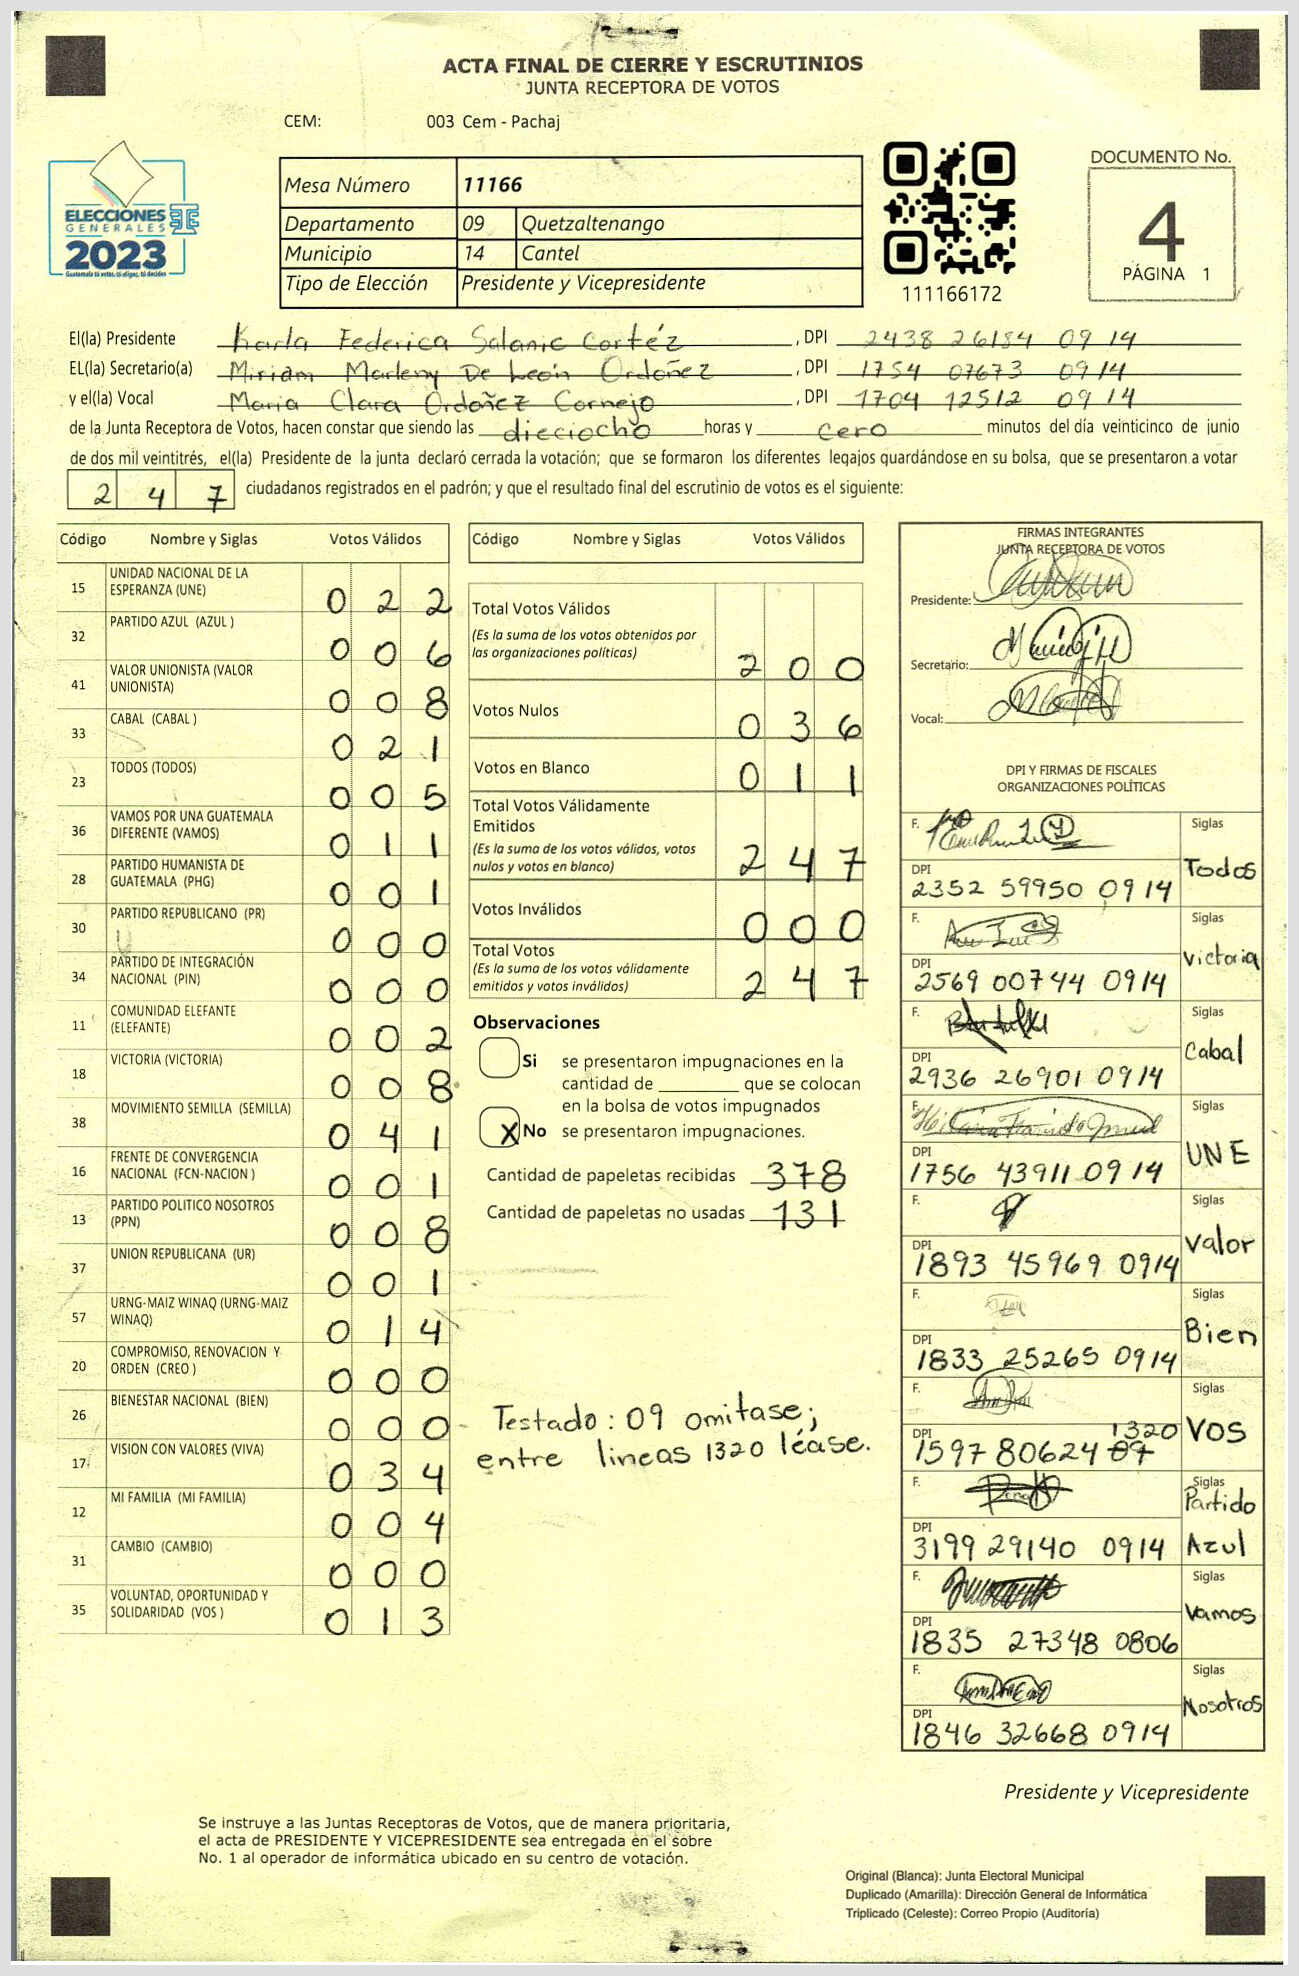 ACTA FINAL DE CIERRE Y ESCRUTINIOS
JUNTA RECEPTORA DE VOTOS
CEM: 003 Cem - Pachaj
ELECCIONES
GENERALES
2023
Guatemala tú votas, tú eliges, tú decides
Mesa Número 11166
Departamento 09 Quetzaltenango
Municipio 14 Cantel
Tipo de Elección Presidente y Vicepresidente
111166172
DOCUMENTO No.
4
PÁGINA 1
El(la) Presidente Karla Federica Salanic Cortéz, DPI 2438 26184 09 14
EL(la) Secretario(a) Miriam Marleny De León Ordoñez, DPI 1754 07673 0914
y el(la) Vocal Maria Clara Ordoñez Cornejo, DPI 1704 12512 0914
de la Junta Receptora de Votos, hacen constar que siendo las dieciocho horas y cero minutos del día veinticinco de junio
de dos mil veintitrés, el(la) Presidente de la junta declaró cerrada la votación; que se formaron los diferentes legajos quardándose en su bolsa, que se presentaron a votar
2 4 7 ciudadanos registrados en el padrón; y que el resultado final del escrutinio de votos es el siguiente:
Código Nombre y Siglas Votos Válidos
15 UNIDAD NACIONAL DE LA ESPERANZA (UNE) 0 2 2
32 PARTIDO AZUL (AZUL ) 0 0 6
41 VALOR UNIONISTA (VALOR UNIONISTA) 0 0 8
33 CABAL (CABAL ) 0 2 1
23 TODOS (TODOS) 0 0 5
36 VAMOS POR UNA GUATEMALA DIFERENTE (VAMOS) 0 1 1
28 PARTIDO HUMANISTA DE GUATEMALA (PHG) 0 0 1
30 PARTIDO REPUBLICANO (PR) 0 0 0
34 PARTIDO DE INTEGRACIÓN NACIONAL (PIN) 0 0 0
11 COMUNIDAD ELEFANTE (ELEFANTE) 0 0 2
18 VICTORIA (VICTORIA) 0 0 8
38 MOVIMIENTO SEMILLA (SEMILLA) 0 4 1
16 FRENTE DE CONVERGENCIA NACIONAL (FCN-NACION ) 0 0 1
13 PARTIDO POLITICO NOSOTROS (PPN) 0 0 8
37 UNION REPUBLICANA (UR) 0 0 1
57 URNG-MAIZ WINAQ (URNG-MAIZ WINAQ) 0 1 4
20 COMPROMISO, RENOVACION Y ORDEN (CREO ) 0 0 0
26 BIENESTAR NACIONAL (BIEN) 0 0 0
17 VISION CON VALORES (VIVA) 0 3 4
12 MI FAMILIA (MI FAMILIA) 0 0 4
31 CAMBIO (CAMBIO) 0 0 0
35 VOLUNTAD, OPORTUNIDAD Y SOLIDARIDAD (VOS ) 0 1 3
Código Nombre y Siglas Votos Válidos
Total Votos Válidos
(Es la suma de los votos obtenidos por
las organizaciones políticas) 2 0 0
Votos Nulos 0 3 6
Votos en Blanco 0 1 1
Total Votos Válidamente
Emitidos
(Es la suma de los votos válidos, votos
nulos y votos en blanco) 2 4 7
Votos Inválidos 0 0 0
Total Votos
(Es la suma de los votos válidamente
emitidos y votos inválidos) 2 4 7
Observaciones
Si se presentaron impugnaciones en la
cantidad de ________ que se colocan
en la bolsa de votos impugnados
X No se presentaron impugnaciones.
Cantidad de papeletas recibidas 378
Cantidad de papeletas no usadas 131
Testado: 09 omitase;
entre lineas 1320 léase.
FIRMAS INTEGRANTES
JUNTA RECEPTORA DE VOTOS
Presidente:
Secretario:
Vocal:
DPI Y FIRMAS DE FISCALES
ORGANIZACIONES POLÍTICAS
F. Siglas
DPI Todos
2352 59950 0914
F. Siglas
DPI Victoria
2569 00744 0914
F. Siglas
DPI Cabal
2936 26901 0914
F. Siglas
DPI UNE
1756 43911 0914
F. Siglas
DPI Valor
1893 45969 0914
F. Siglas
DPI Bien
1833 25265 0914
F. Siglas
DPI 1320 VOS
1597 80624 09
F. Siglas
DPI Partido Azul
3199 29140 0914
F. Siglas
DPI Vamos
1835 27348 0806
F. Siglas
DPI Nosotros
1846 32668 0914
Presidente y Vicepresidente
Se instruye a las Juntas Receptoras de Votos, que de manera prioritaria,
el acta de PRESIDENTE Y VICEPRESIDENTE sea entregada en el sobre
No. 1 al operador de informática ubicado en su centro de votación.
Original (Blanca): Junta Electoral Municipal
Duplicado (Amarilla): Dirección General de Informática
Triplicado (Celeste): Correo Propio (Auditoría)